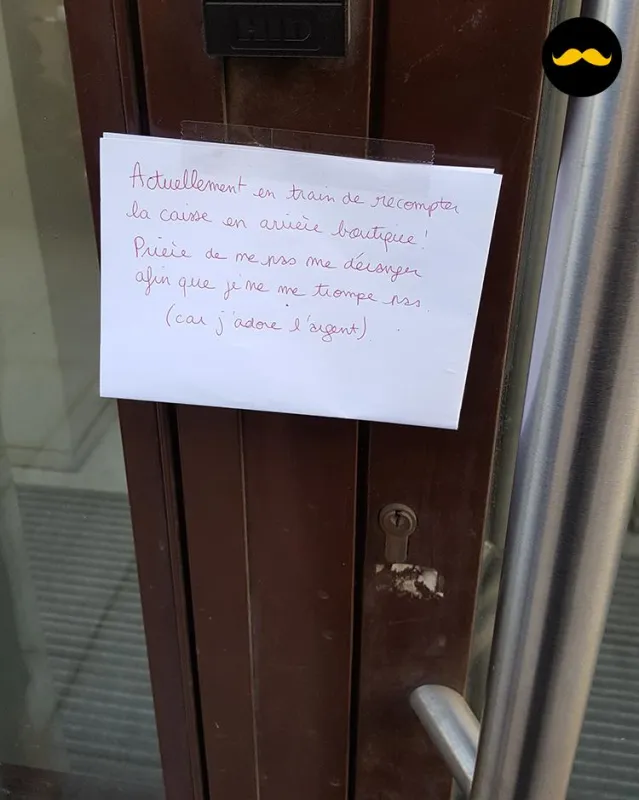 HID
Actuellement en train de recompter
la caisse en arrière boutique !
Prière de ne pas me déranger
afin que je ne me trompe pas.
(car j'adore l'argent).